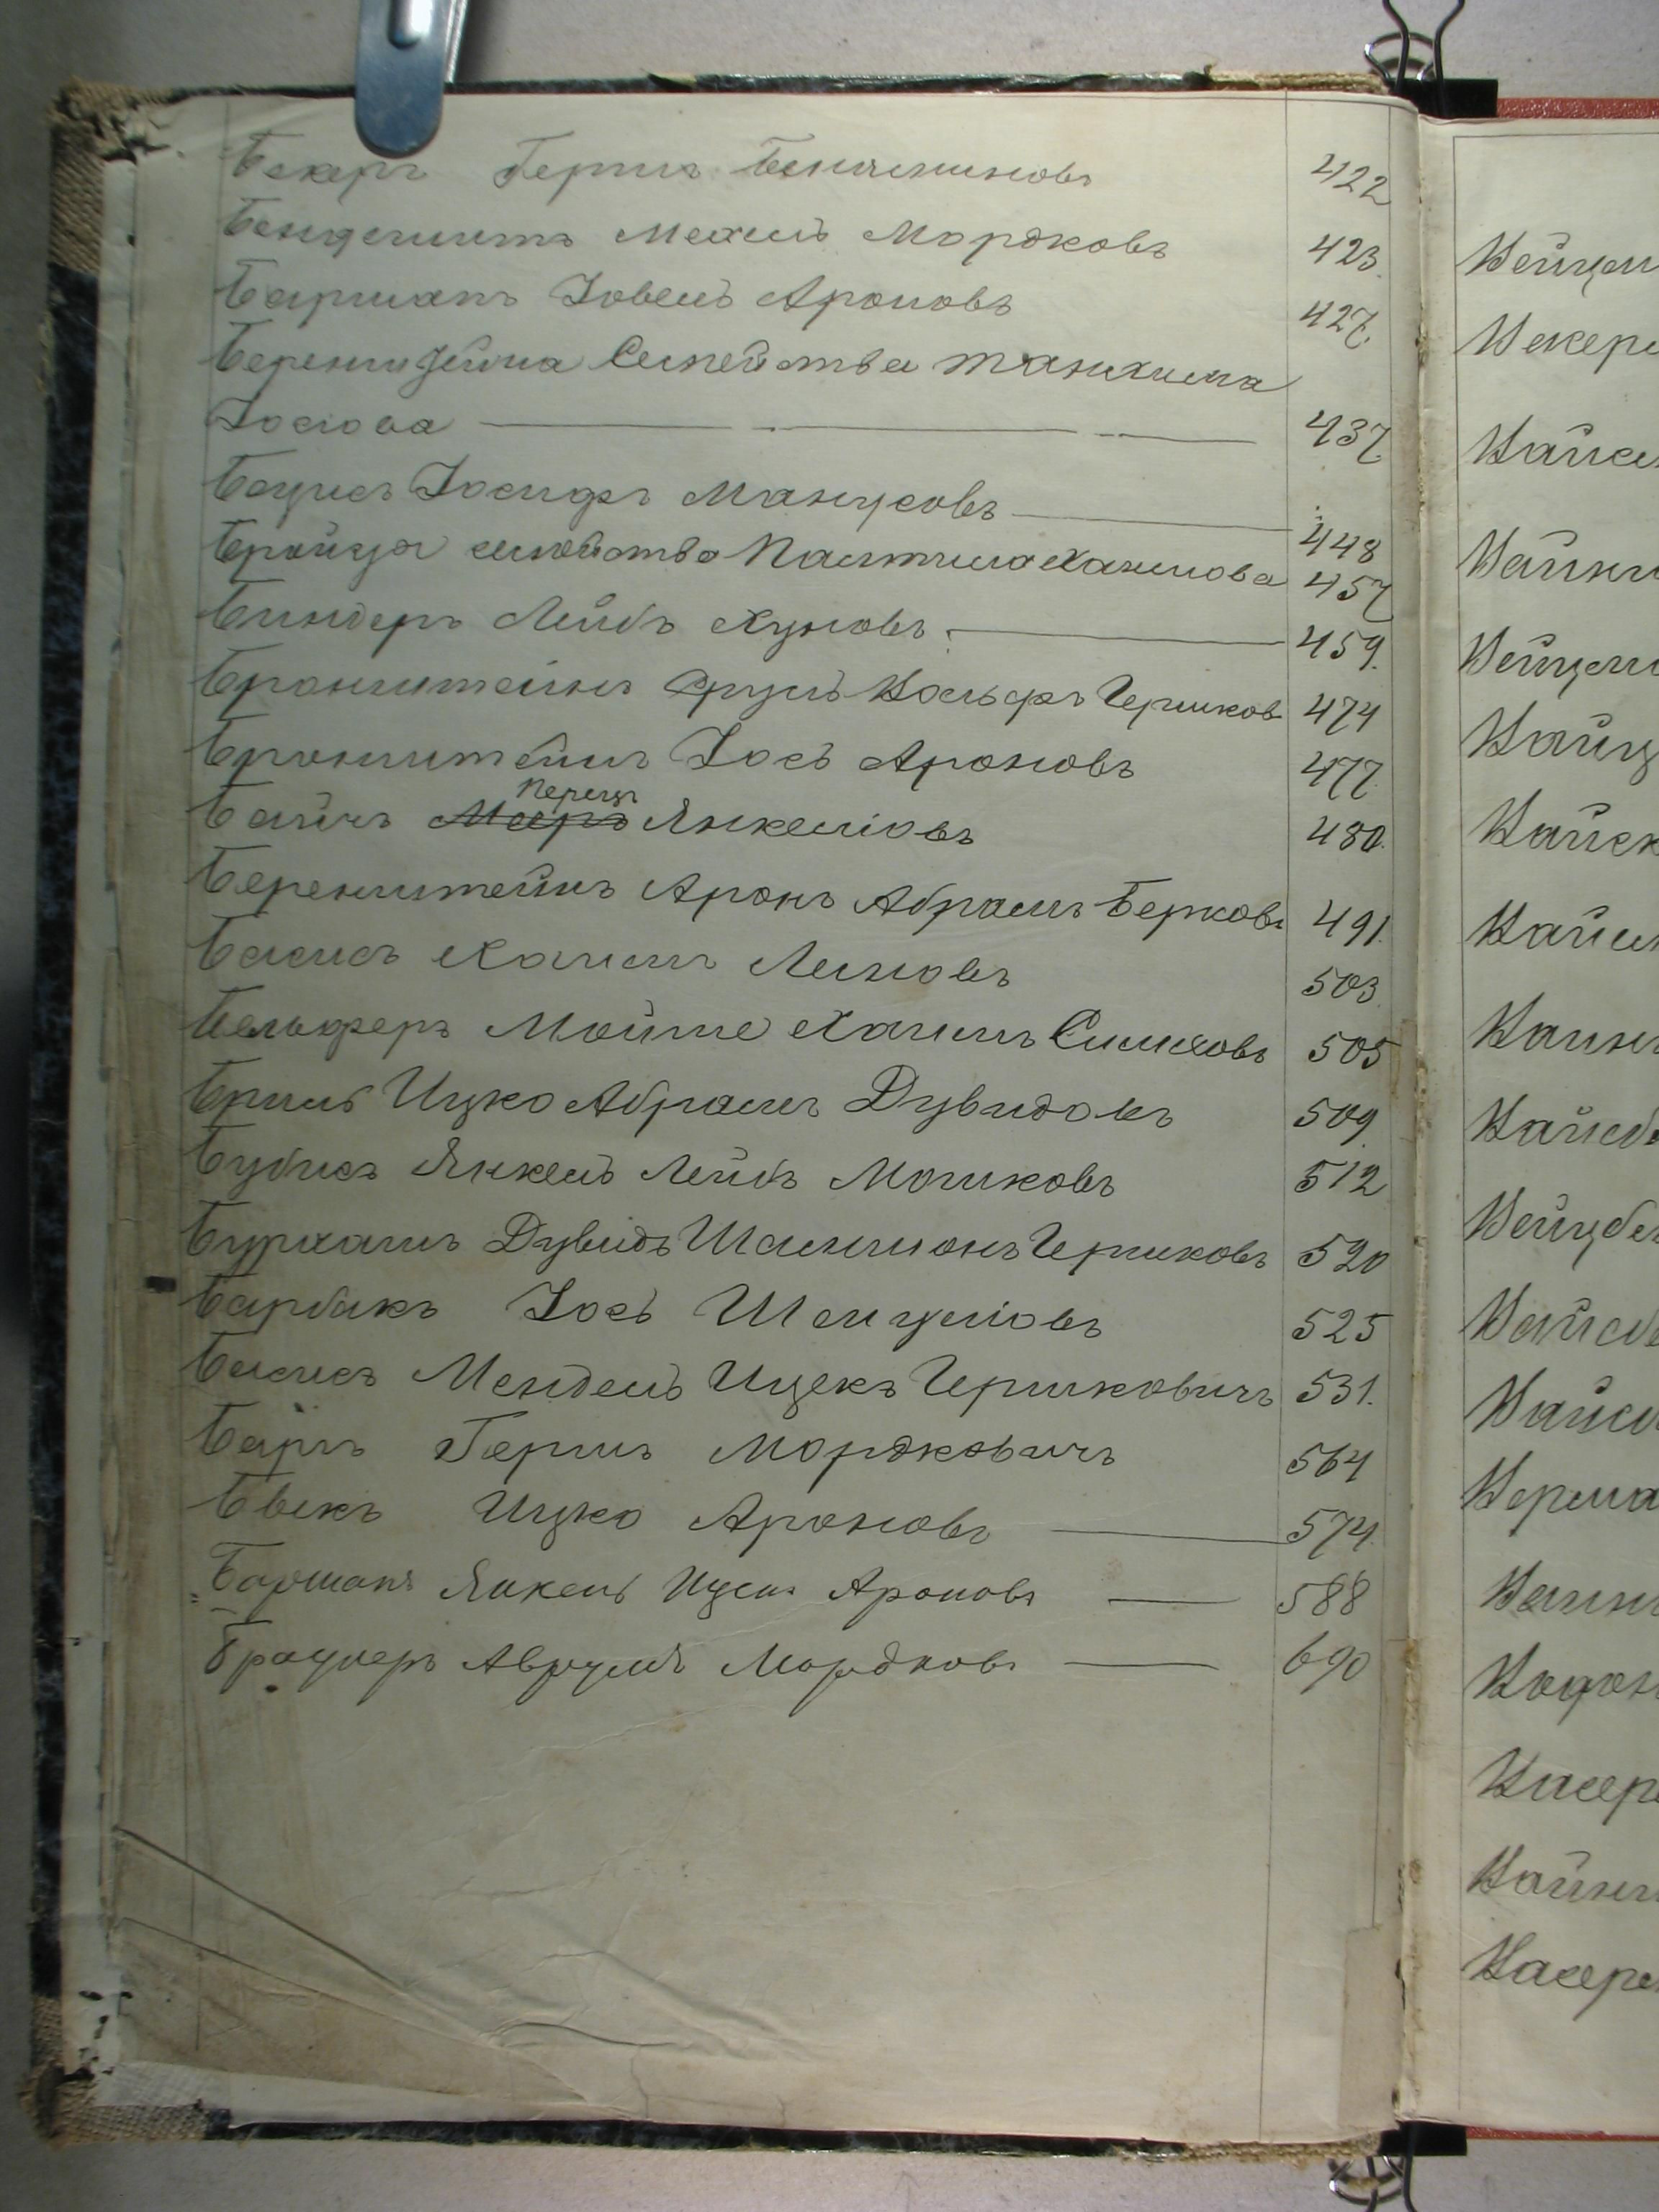 Бекеръ Гершъ Беньяминовъ 422
Бендеритъ Мехель Мордковъ 423.
Берманъ Іовель Ароновъ 427.
Беренштейна Семейства Танхима
Іосіова 437
Баусъ Іосифъ Манусовъ 448
Бройця семейство Палтила Хаимова 457
Биндеръ Лейбъ Хуновъ 459.
Бронштейнъ Сруль Вольфъ Гершковъ 474
Бронштейнъ Іосъ Ароновъ 477.
Перецъ
Байчъ Мееръ Янкеліовъ 480.
Беренштейнъ Аронъ Абрамъ Берковъ 491.
Басисъ Хаимъ Лейзовъ 503.
Бельферъ Мойше Хаимъ Симховъ 505
Бриль Ицко Абрамъ Дувидовъ 509.
Бубисъ Янкель Лейбъ Мошковъ 512
Бурхашъ Дувидъ Шамшонъ Гершковъ 520
Барбакъ Іосъ Шмуліовъ 525
Басисъ Мендель Ицекъ Гершковичъ 531.
Бергъ Гершъ Мордковичъ 564
Бвекъ Ицко Ароновъ 574.
Борманъ Янкель Ицекъ Ароновъ 588
Браунеръ Аврумъ Мордковъ 690
Вейцм
Векеръ
Вайсм
Вайнш
Вейцем
Вайц
Вайск
Вайсм
Вайнъ
Вайсб
Вейцбе
Вайсбе
Вайсм
Верма
Вайни
Водон
Васер
Вайни
Васер